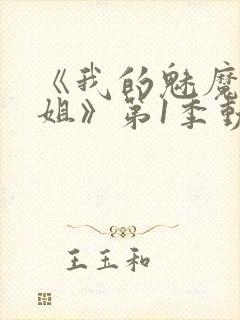 《我的魅魔
姐》第1季動
王玉和